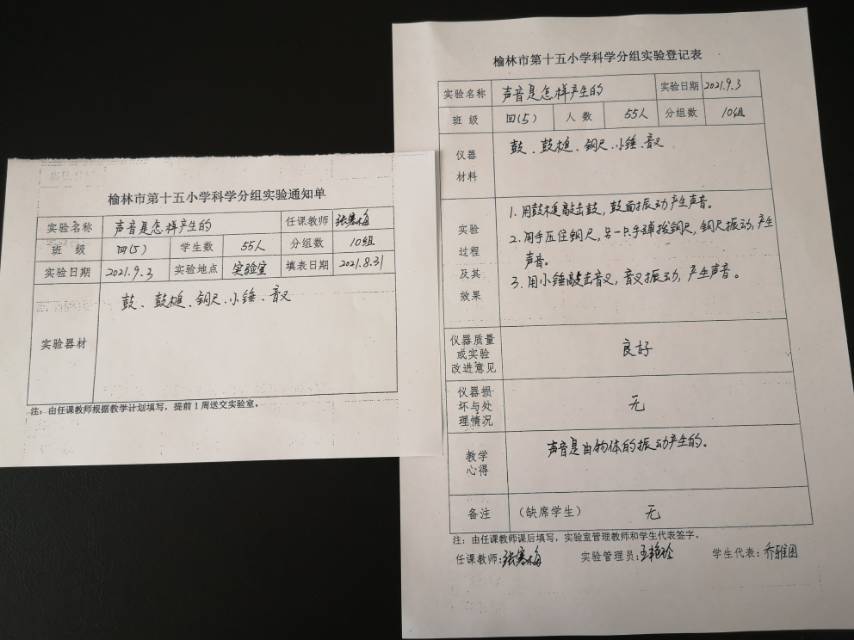 榆林市第十五小学科学分组实验通知单
实验名称 声音是怎样产生的 任课教师 张寒梅
班级 四(5) 学生数 55人 分组数 10组
实验日期 2021.9.3 实验地点 实验室 填表日期 2021.8.31
实验器材 鼓、鼓槌、钢尺、小锤、音叉
注：由任课教师根据教学计划填写，提前1周送交实验室。
榆林市第十五小学科学分组实验登记表
实验名称 声音是怎样产生的 实验日期 2021.9.3
班级 四(5) 人数 55人 分组数 10组
仪器材料 鼓、鼓槌、钢尺、小锤、音叉
实验过程及其效果
1.用鼓槌敲击鼓，鼓面振动产生声音。
2.用手压住钢尺，另一只手弹拨钢尺，钢尺振动，产生
声音。
3.用小锤敲击音叉，音叉振动，产生声音。
仪器质量或实验改进意见 良好
仪器损坏与处理情况 无
教学心得 声音是由物体的振动产生的。
备注 (缺席学生) 无
注：由任课教师课后填写，实验室管理教师和学生代表签字。
任课教师:张寒梅 实验管理员:王艳 学生代表:乔雅